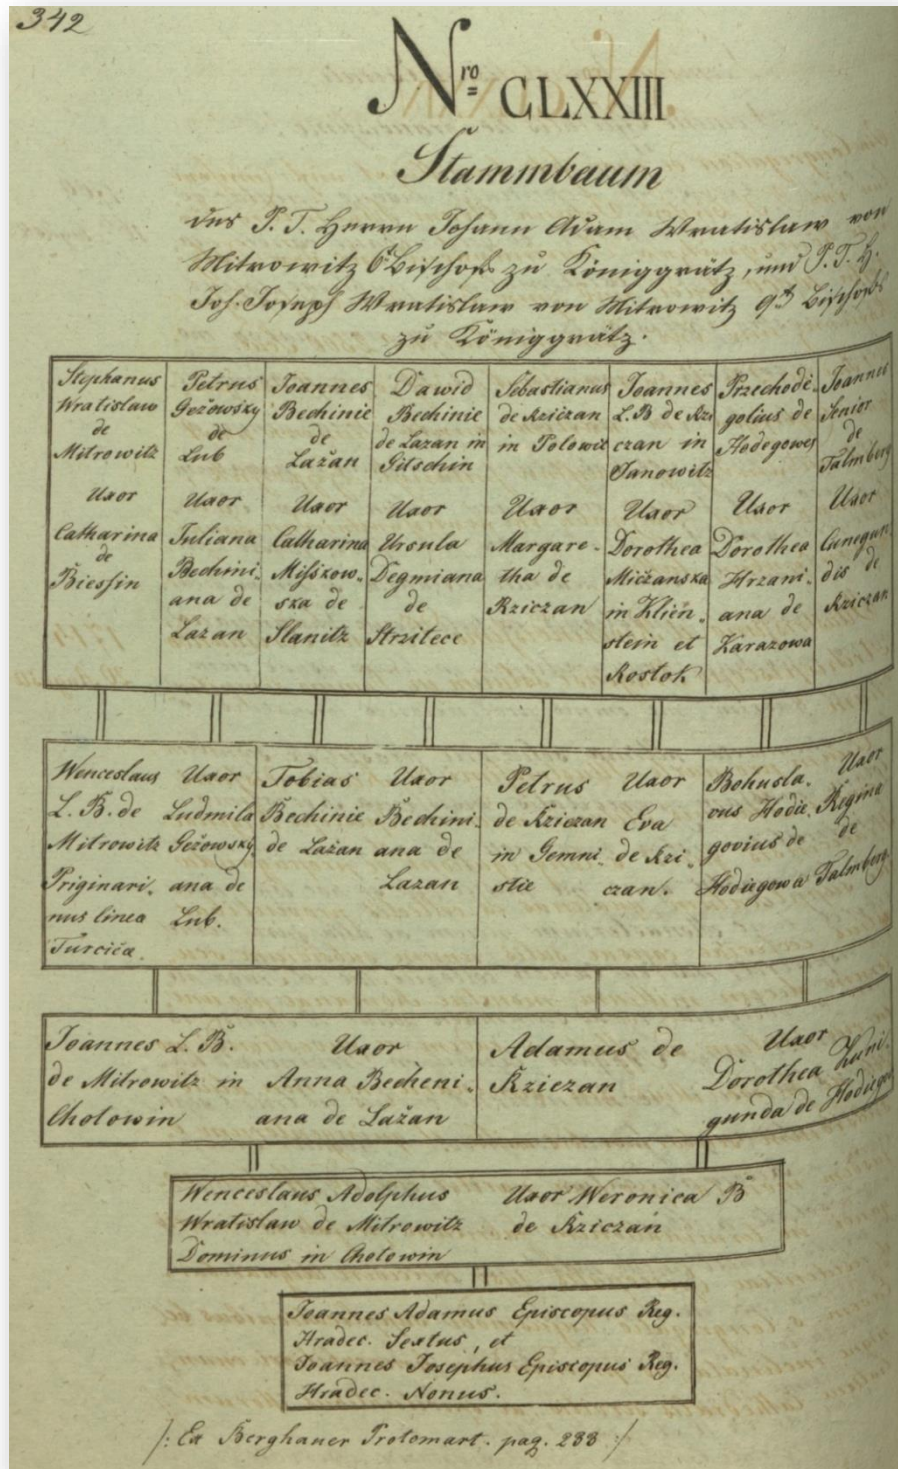 342
Nro CLXXIII
Stammbaum
des P. T. Herrn Johann Adam Wratislaw von
Mitrowitz 6t Bischofs zu Königgrätz, und P. T. H.
Joh. Joseph Wratislaw von Mitrowitz 9t Bischofs
zu Königgrätz.
Stephanus
Wratislaw
de
Mitrowitz
Uxor
Catharina
de
Biessin
Petrus
Gežowsky
de
Lub
Uxor
Juliana
Bechini-
ana de
Lazan
Joannes
Bechinie
de
Lažan
Uxor
Catharina
Misskow-
ska de
Slanitz
Dawid
Bechinie
de Lazan in
Gitschin
Uxor
Ursula
Degmiana
de
Strzitece
Sebastianus
de Rziczan
in Polowit
Uxor
Margare-
tha de
Rziczan
Joannes
L. B de Rzi
czan in
Janowitz
Uxor
Dorothea
Mičzanska
in Klien-
stein et
Rostok
Przechodě-
golius de
Hodegowes
Uxor
Dorothea
Hrzani-
ana de
Harazowa
Joannes
Senior
de
Talmberg
Uxor
Cunegun
dis de
Rziczan
Wenceslaus
L. B. de
Mitrowitz
Priginari-
nus linea
Turcica.
Uxor
Ludmila
Gežowsky-
ana de
Lub.
Tobias
Bechinie
de Lažan
Uxor
Bechini-
ana de
Lazan
Petrus
de Rziczan
in Gemni-
stie
Uxor
Eva
de Rzi-
czan.
Bohusla-
vus Hodie-
govius de
Hodiegowa
Uxor
Regina
de
Talmberg
Joannes L. B.
de Mitrowitz in
Chotowin
Uxor
Anna Becheni-
ana de Lažan
Adamus de
Rziczan
Uxor
Dorothea Kuni-
gunda de Hodiegow
Wenceslaus Adolphus
Wratislaw de Mitrowitz
Dominus in Chotowin
Uxor Weronica B
de Rziczan
Joannes Adamus Episcopus Reg.
Hradec. Sextus, et
Joannes Josephus Episcopus Reg.
Hradec. Nonus.
/: Ex Berghauer Protomart. pag. 288 :/